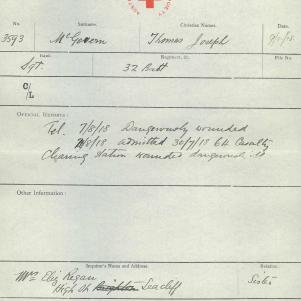 No.
Surname.
Christian Names.
Date.
3593
McGovern
Thomas Joseph
Rank.
Regiment, &c.
File No.
Sgt.
32 Batt
C/
/L
OFFICIAL REPORTS:
Tel. 7/8/18 Dangerously wounded
/8/18 admitted 30/7/18 Casualty
Clearing Station wounded
Other Information:
Inquirer's Name and Address.
Relation.
Mrs Eliz Regan
High St Brighton Seacliff
Sister